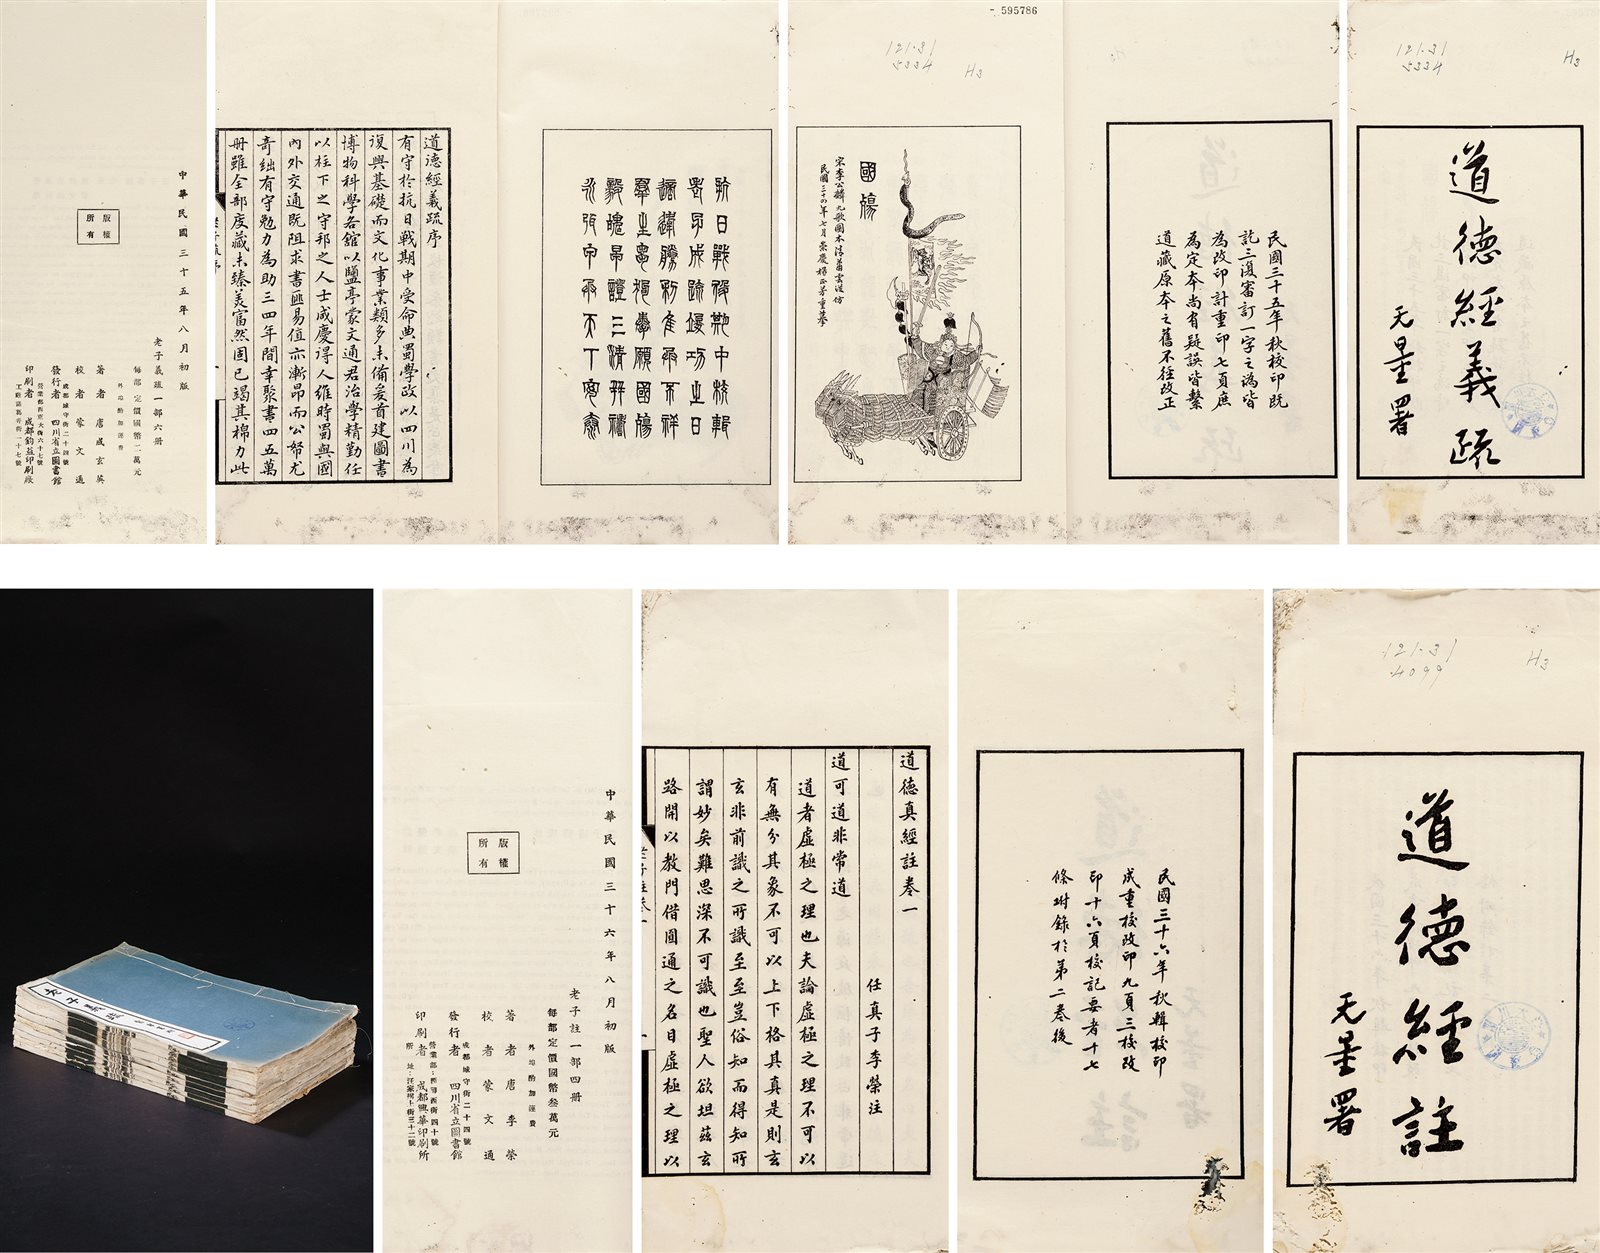 121.31
5334
H3
道德經義疏
无量署
民國三十五年秋校印既
訖三復審訂一字之譌皆
為改印計重印七頁庶
為定本尚有疑誤皆繫
道藏原本之舊不徑改正
- 595786
121.31
5334
H3
國殤
宋李公麟九歌圖本清蕭雲從仿
民國三十四年七月崇慶楊
抗日戰役
老子成疏 功之日
勝利 兵不祥
羣生 願國殤
毅魄昇證三清
永弭甲兵天下
道德經義疏序
有守於抗日戰期中受命典蜀學政以四川為
復興基礎而文化事業類多未備爰首建圖書
博物科學各館以鹽亭蒙文通君治學精勤任
以柱下之守邦之人士咸慶得人維時蜀與國
內外交通既阻求書匪易值亦漸昂而公帑尤
奇絀有守勉力為助三四年間幸聚書四五萬
冊雖全部庋藏未臻美富然固已竭其棉力此
中華民國三十五年八月初版
老子義疏一部六册
每部定價國幣二萬元
外埠酌加運費
著者 唐成玄英
校者 蒙文通
成都城守街二十四號
發行者 四川省立圖書館
營業部西東大街六十七號
印刷者 成都鈞益印刷廠
版權
所有
121.31
4099
H3
道德經註
无量署
民國三十六年秋輯校印
成重校改印九頁三校改
印十六頁校記要者十七
條坿錄於第二卷後
道德真經註卷一
任真子李榮注
道可道非常道
道者虛極之理也夫論虛極之理不可以
有無分其象不可以上下格其真是則玄
玄非前識之所識至至豈俗知而得知所
謂妙矣難思深不可識也聖人欲坦茲玄
路開以教門借圓通之名目虛極之理以
中華民國三十六年八月初版
老子註一部四册
每部定價國幣叁萬元
外埠酌加運費
著者 唐李榮
校者 蒙文通
成都城守街二十四號
發行者 四川省立圖書館
印刷者 成都興華印刷所
版權
所有
老子義疏